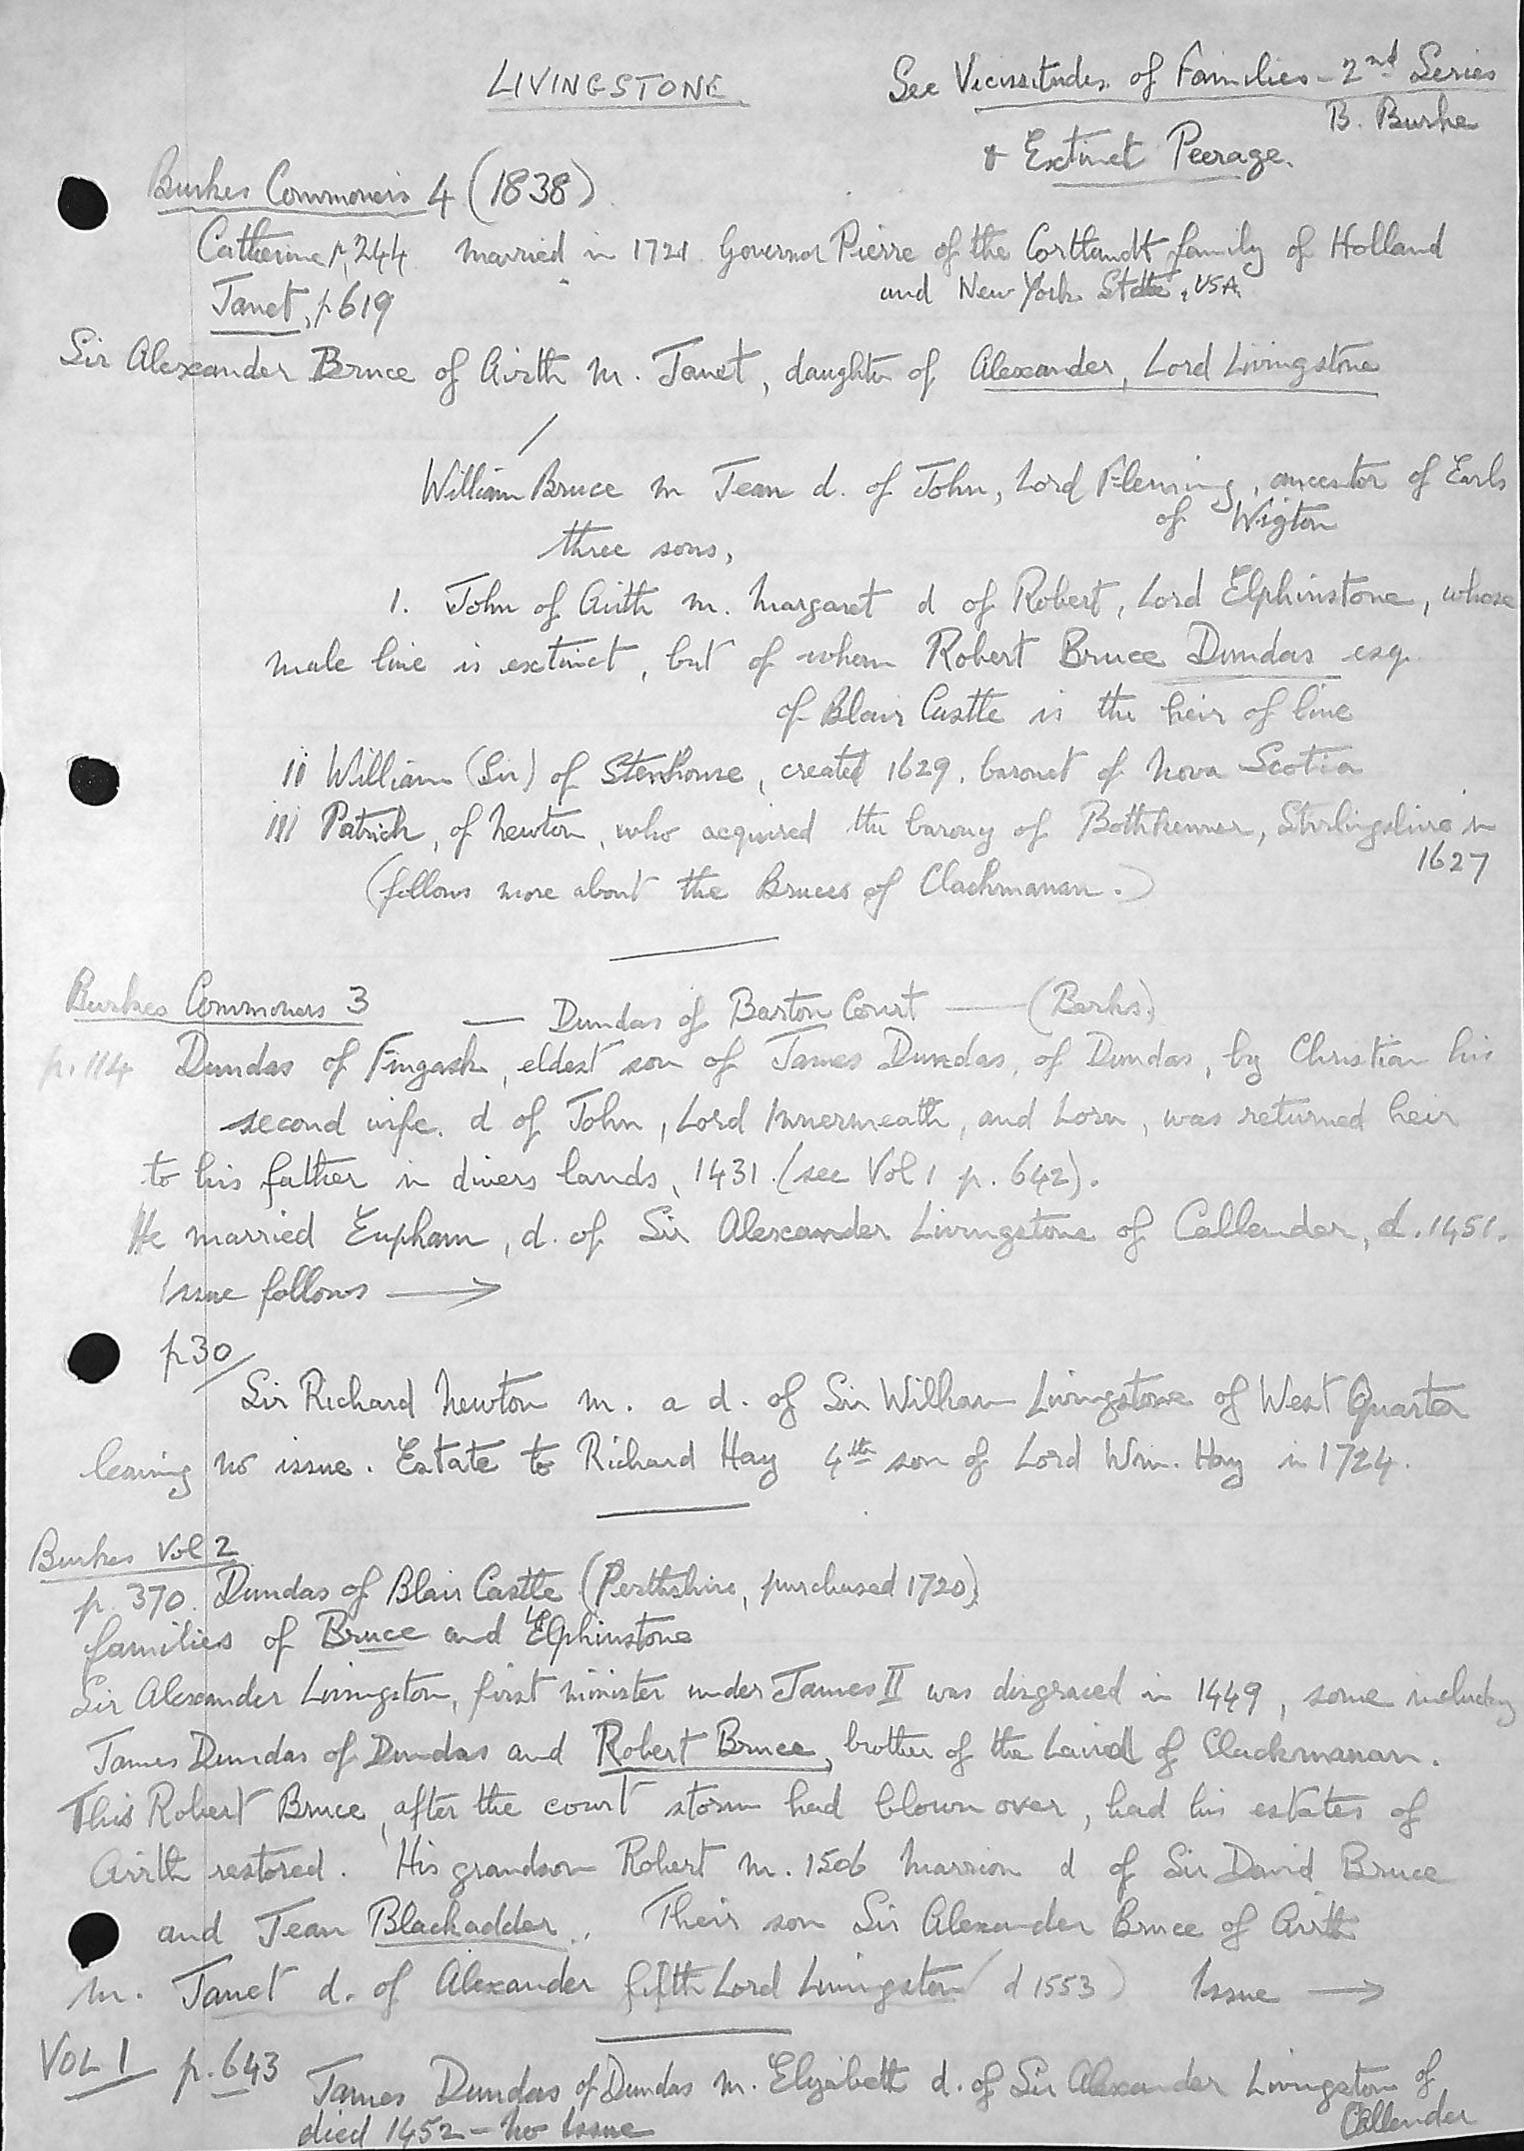 LIVINGSTONE
See Vicissitudes of Families - 2nd Series
B. Burke
& Extinct Peerage.
Burkes Commoners 4 (1838)
Catherine p. 244 married in 1721 Governor Pierre of the Cortlandt family of Holland
and New York State, USA
Janet, p 619
Sir Alexander Bruce of Airth m. Janet, daughter of Alexander, Lord Livingstone
/
William Bruce m Jean d. of John, Lord Fleming, ancestor of Earls
of Wigton
three sons,
1. John of Airth m. Margaret d of Robert, Lord Elphinstone, whose
male line is extinct, but of whom Robert Bruce Dundas esq.
of Blair Castle is the heir of line
ii William (Sir) of Stenhouse, created 1629, baronet of Nova Scotia
iii Patrick, of Newton, who acquired the barony of Bothkenner, Stirlingshire in
1627
(follows more about the Bruces of Clackmanan.)
Burkes Commoners 3 — Dundas of Barton Court — (Berks)
p. 114 Dundas of Fingask, eldest son of James Dundas, of Dundas, by Christian his
second wife. d of John, Lord Innermeath, and Lorn, was returned heir
to his father in divers lands, 1431. (see Vol 1 p. 642).
He married Eupham, d. of Sir Alexander Livingstone of Callender, d. 1451.
Issue follows →
p30/
Sir Richard Newton m. a d. of Sir William Livingstone of West Quarter
leaving no issue. Estate to Richard Hay 4th son of Lord Wm. Hay in 1724.
Burkes Vol 2
p. 370. Dundas of Blair Castle (Perthshire, purchased 1720)
families of Bruce and Elphinstone
Sir Alexander Livingston, first minister under James II was disgraced in 1449, some including
James Dundas of Dundas and Robert Bruce, brother of the Laird of Clackmanan.
This Robert Bruce, after the court storm had blown over, had his estates of
Airth restored. His grandson Robert m. 1506 Marrion d of Sir David Bruce
and Jean Blackadder. Their son Sir Alexander Bruce of Airth
m. Janet d. of Alexander fifth Lord Livingston (d 1553) Issue →
VOL 1 p. 643
James Dundas of Dundas m. Elizabeth d. of Sir Alexander Livingston of
Callender
died 1452 - no Issue